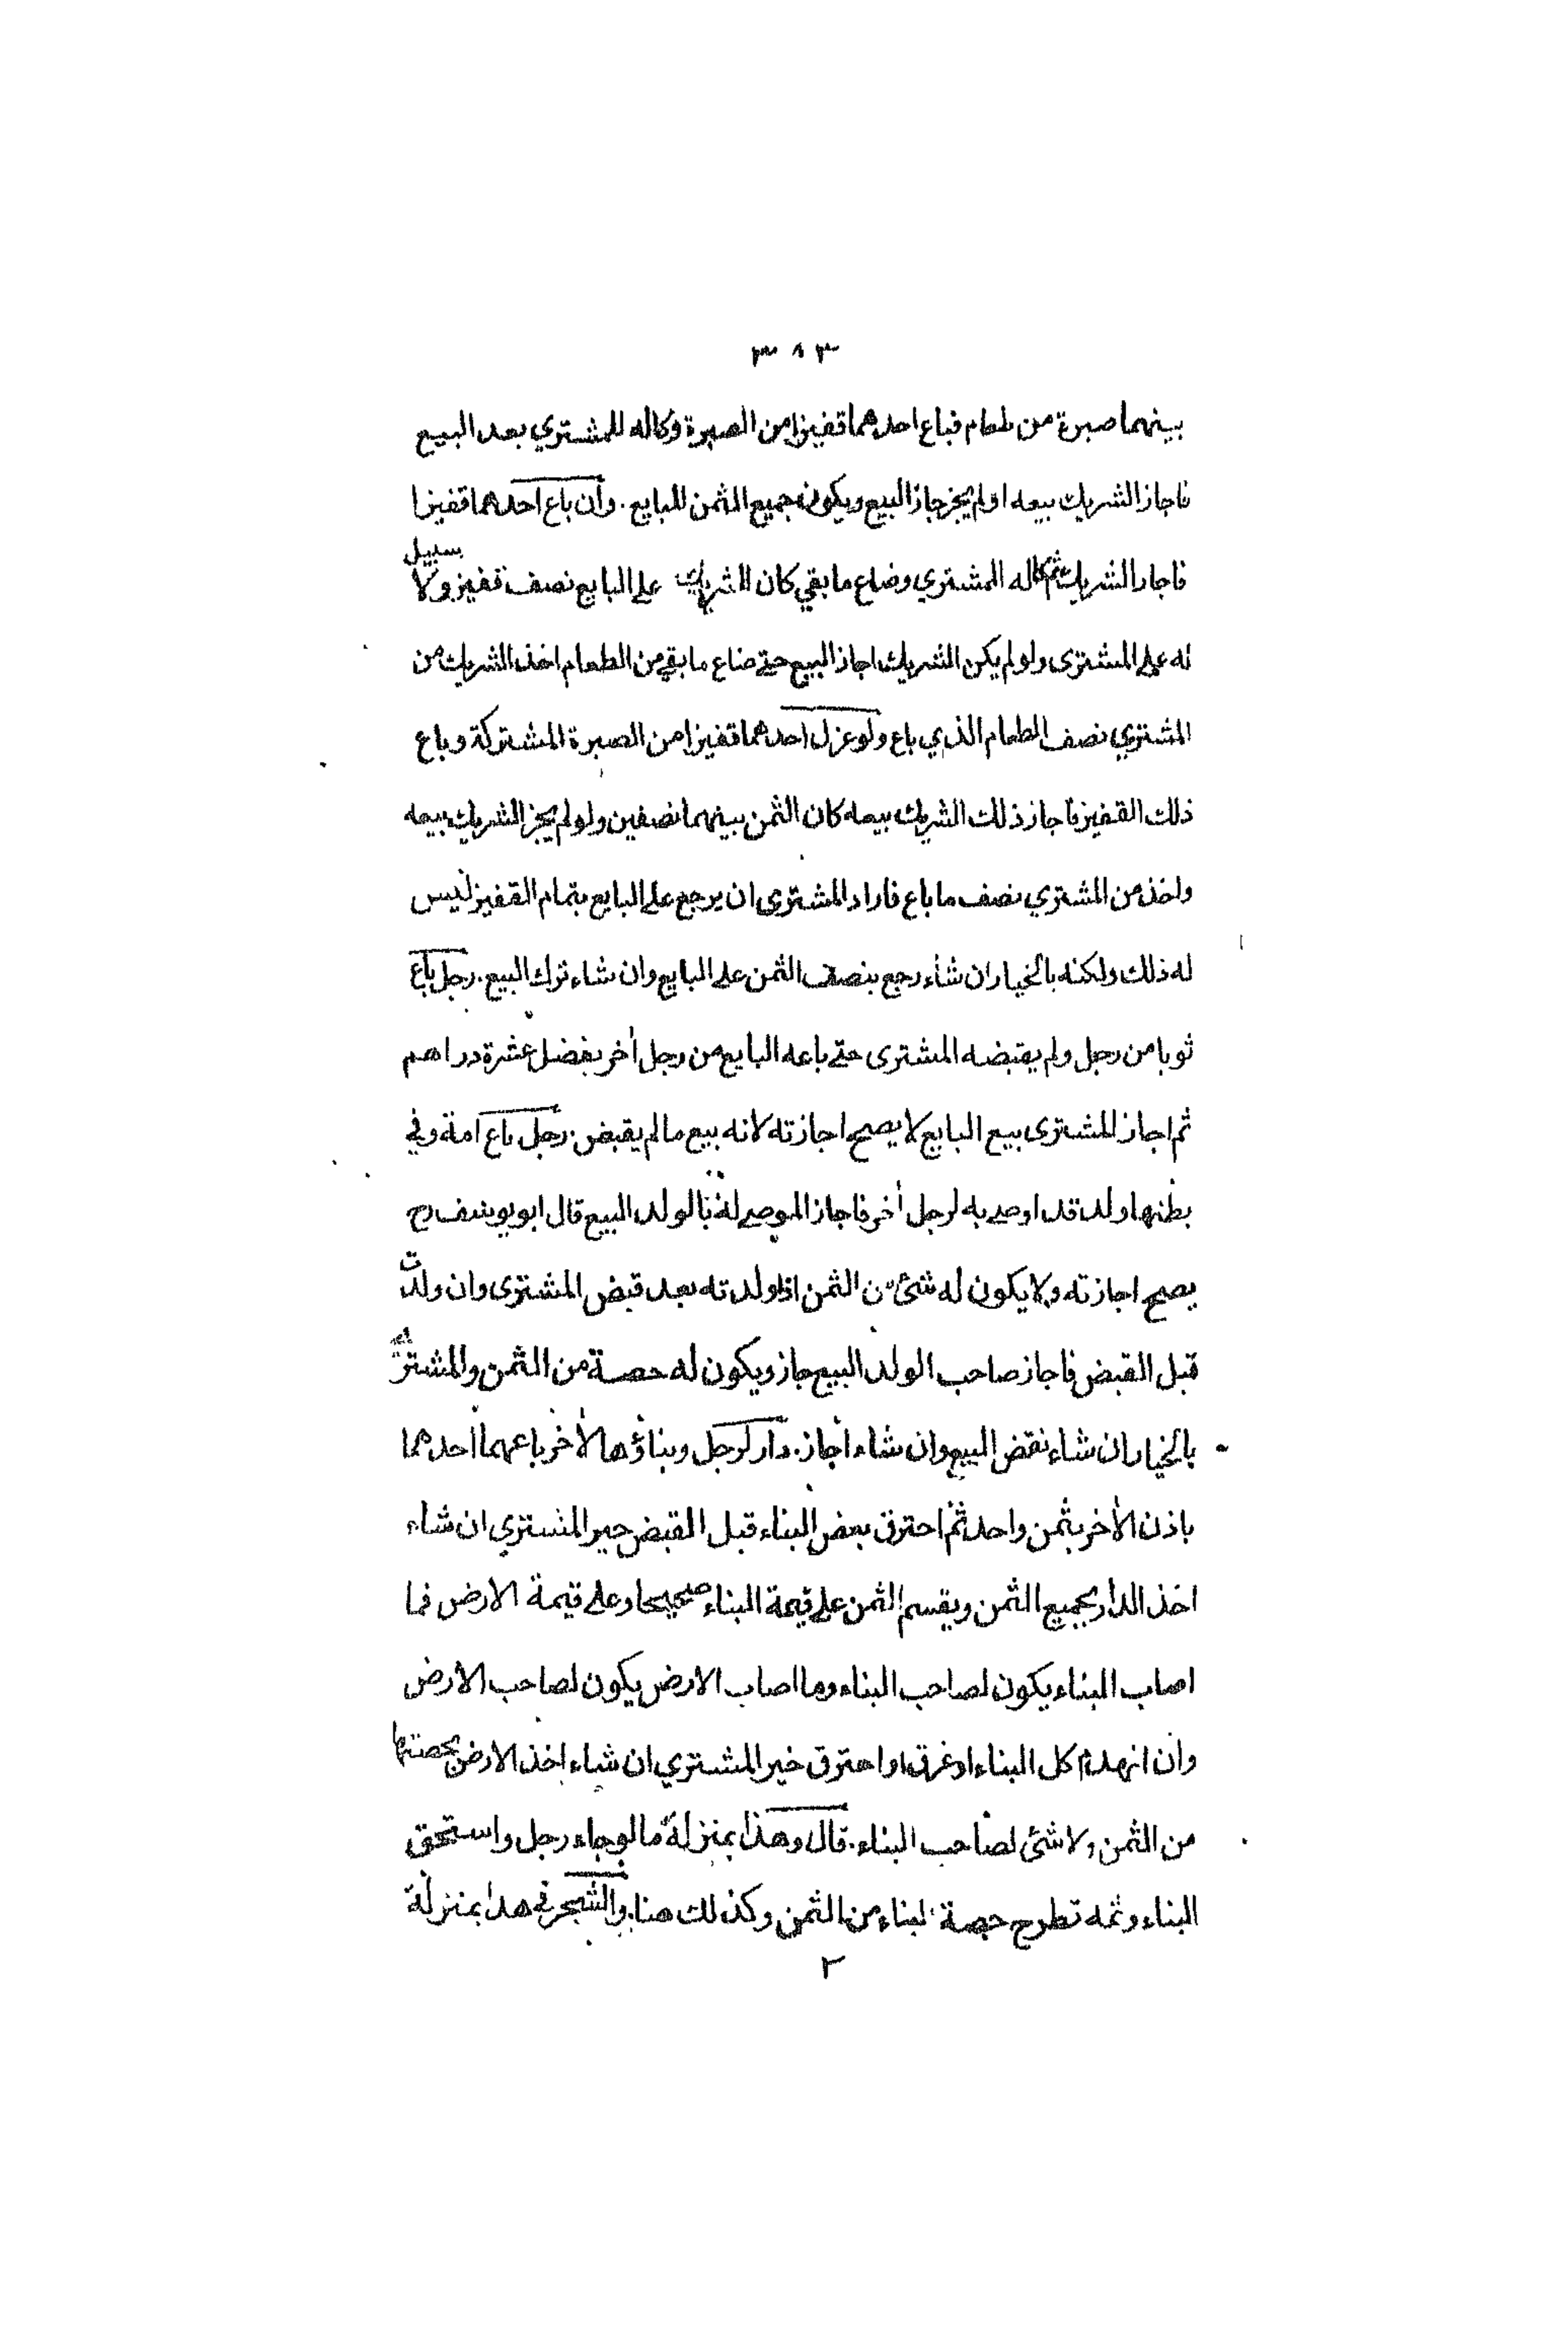 ٣٨٣
بينهما صبرة من طعام فباع احدهما قفيزا من الصبرة وكاله للمشتري بعد البيع
فاجاز الشريك بيعه او لم يجز جاز البيع ويكون جميع الثمن للبايع . وان باع احدهما قفيزا
فاجاز الشريك ثم كاله المشتري وضاع ما بقي كان للشريك على البايع نصف قفيز ولا سبيل
له على المشترى ولو لم يكن الشريك اجاز البيع حتى ضاع ما بقي من الطعام اخذ الشريك من
المشتري نصف الطعام الذي باع ولو عزل احدهما قفيزا من الصبرة المشتركة وباع
ذلك القفيز فاجاز ذلك الشريك بيعه كان الثمن بينهما نصفين ولو لم يجز الشريك بيعه
واخذ من المشتري نصف ما باع فاراد المشترى ان يرجع على البايع بتمام القفيز ليس
له ذلك ولكنه بالخيار ان شاء رجع بنصف الثمن على البايع وان شاء ترك البيع . رجل باع
ثوبا من رجل ولم يقبضه المشترى حتى باعه البايع من رجل أخر بفضل عشرة دراهم
ثم اجاز المشترى بيع البايع لا يصح اجازته لانه بيع ما لم يقبض . رجل باع امة وفي
بطنها ولد قد اوصى به لرجل أخر فاجاز الموصى له بالولد البيع قال ابو يوسف رح
يصح اجازته ولا يكون له شئ من الثمن اذا ولدته بعد قبض المشترى وان ولدت
قبل القبض فاجاز صاحب الولد البيع جاز ويكون له حصة من الثمن والمشترى
بالخيار ان شاء نقض البيع وان شاء اجاز . دار لرجل وبناؤها لأخر باعهما احدهما
باذن الأخر بثمن واحد ثم احترق بعض البناء قبل القبض خير المشتري ان شاء
اخذ الدار بجميع الثمن ويقسم الثمن على قيمة البناء صحيحا وعلى قيمة الارض فما
اصاب البناء يكون لصاحب البناء وما اصاب الارض يكون لصاحب الارض
وان انهدم كل البناء او غرق او احترق خير المشتري ان شاء اخذ الارض بحصتها
من الثمن ولا شئ لصاحب البناء . قال وهذا بمنزلة ما لو جاء رجل واستحق
البناء وثمه تطرح حصة البناء من الثمن وكذلك هنا . والشجر في هذا بمنزلة
٢